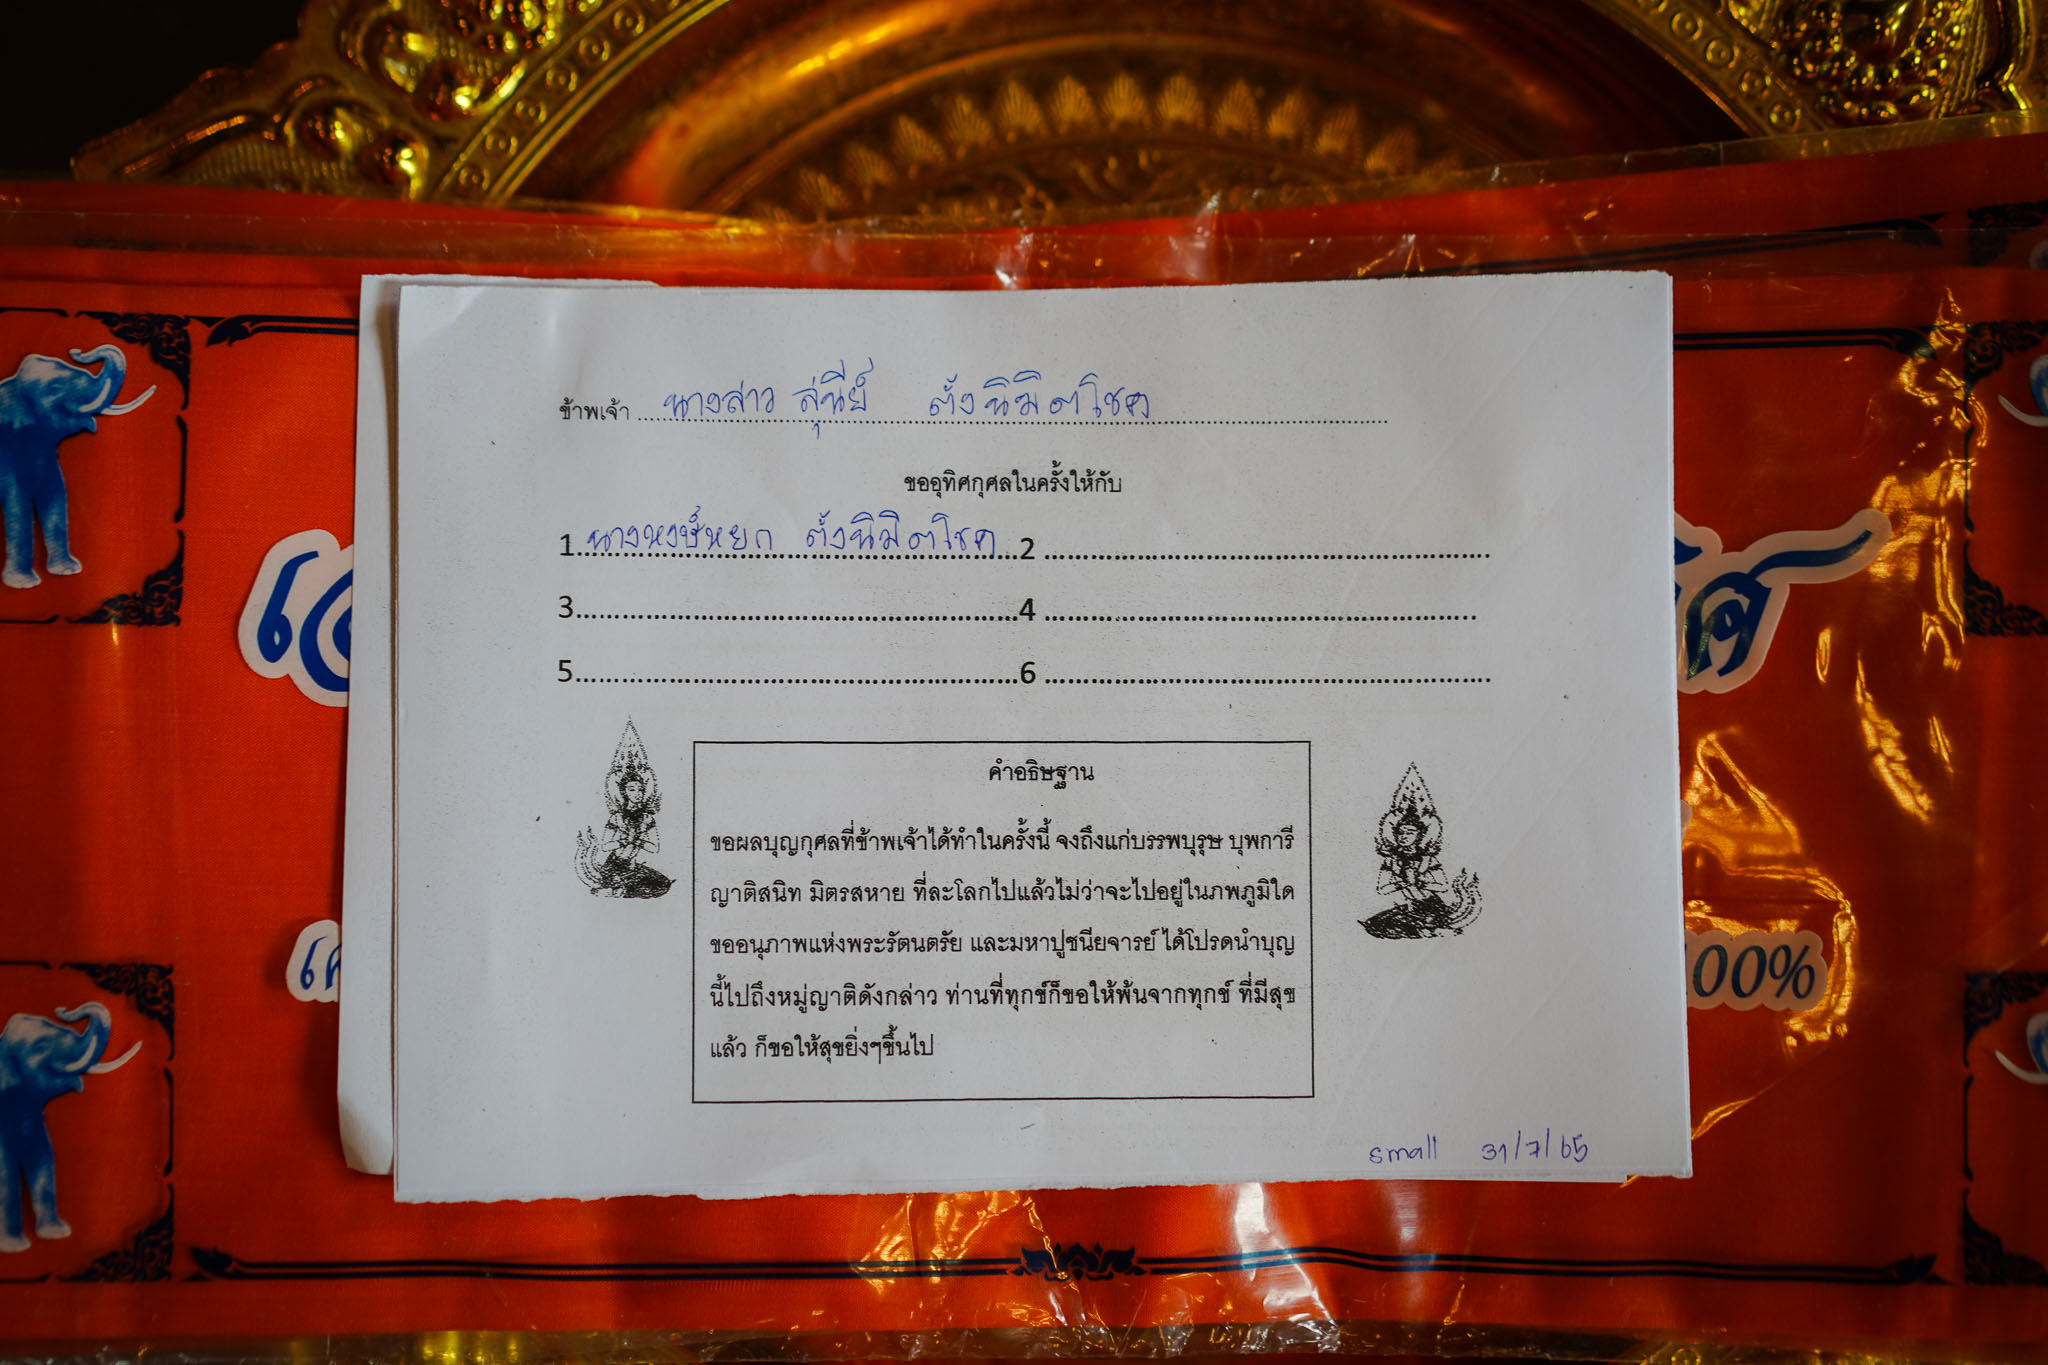 ข้าพเจ้า นางสาว สุ่นีย์ ตั้งนิมิตโชค
ขออุทิศกุศลในครั้งให้กับ
1 นางหงษ์หยก ตั้งนิมิตโชค 2
3 4
5 6
คำอธิษฐาน
ขอผลบุญกุศลที่ข้าพเจ้าได้ทำในครั้งนี้ จงถึงแก่บรรพบุรุษ บุพการี
ญาติสนิท มิตรสหาย ที่ละโลกไปแล้วไม่ว่าจะไปอยู่ในภพภูมิใด
ขออนุภาพแห่งพระรัตนตรัย และมหาปูชนียจารย์ ได้โปรดนำบุญ
นี้ไปถึงหมู่ญาติดังกล่าว ท่านที่ทุกข์ก็ขอให้พ้นจากทุกข์ ที่มีสุข
แล้ว ก็ขอให้สุขยิ่งๆขึ้นไป
100%
small 31/7/65